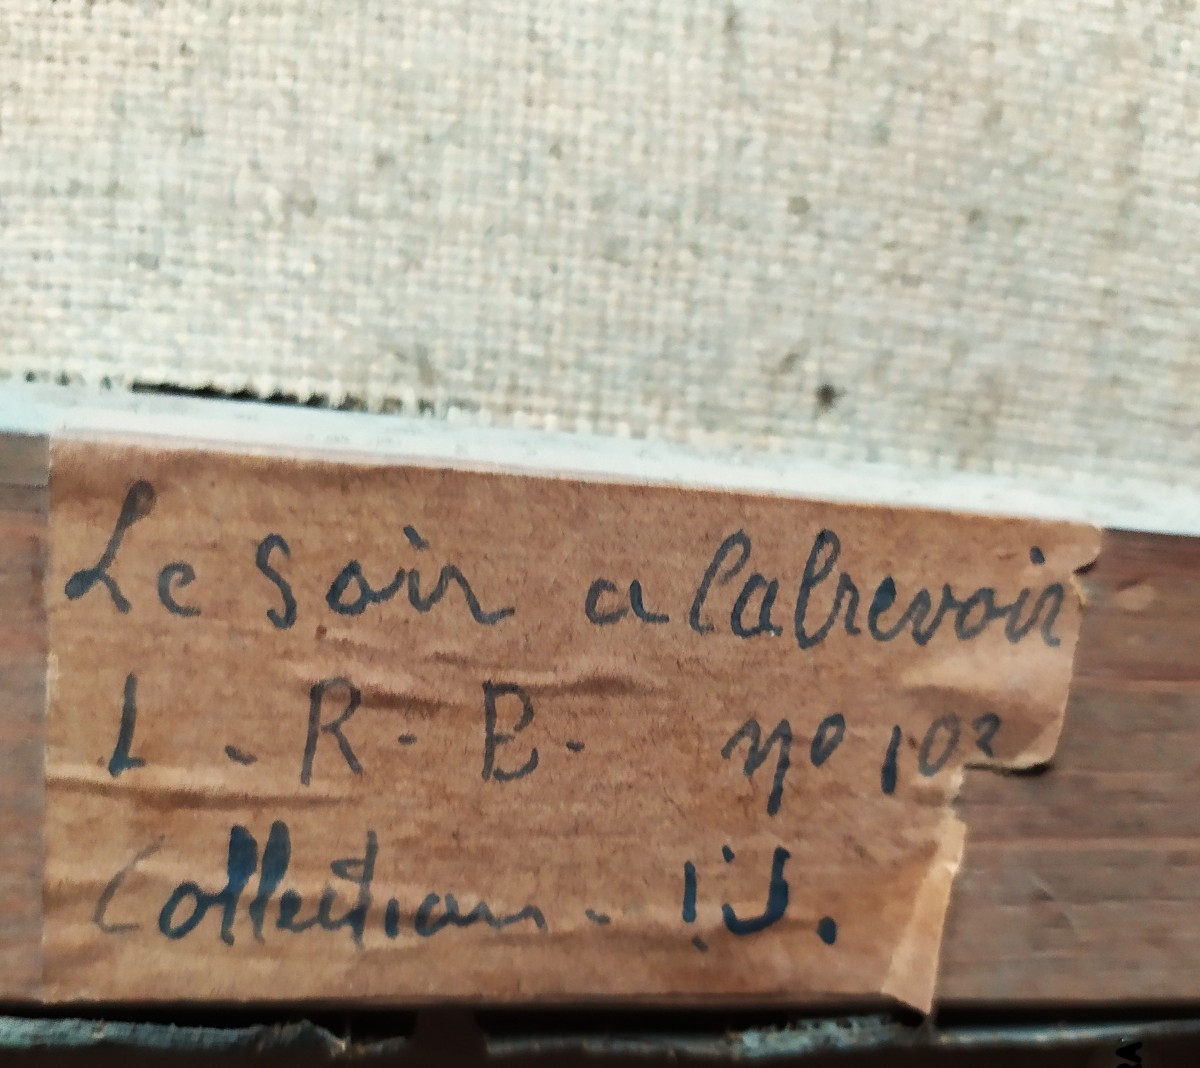 Le Soir a labrevoir
L - R - B - no 102
Collection - I.J.